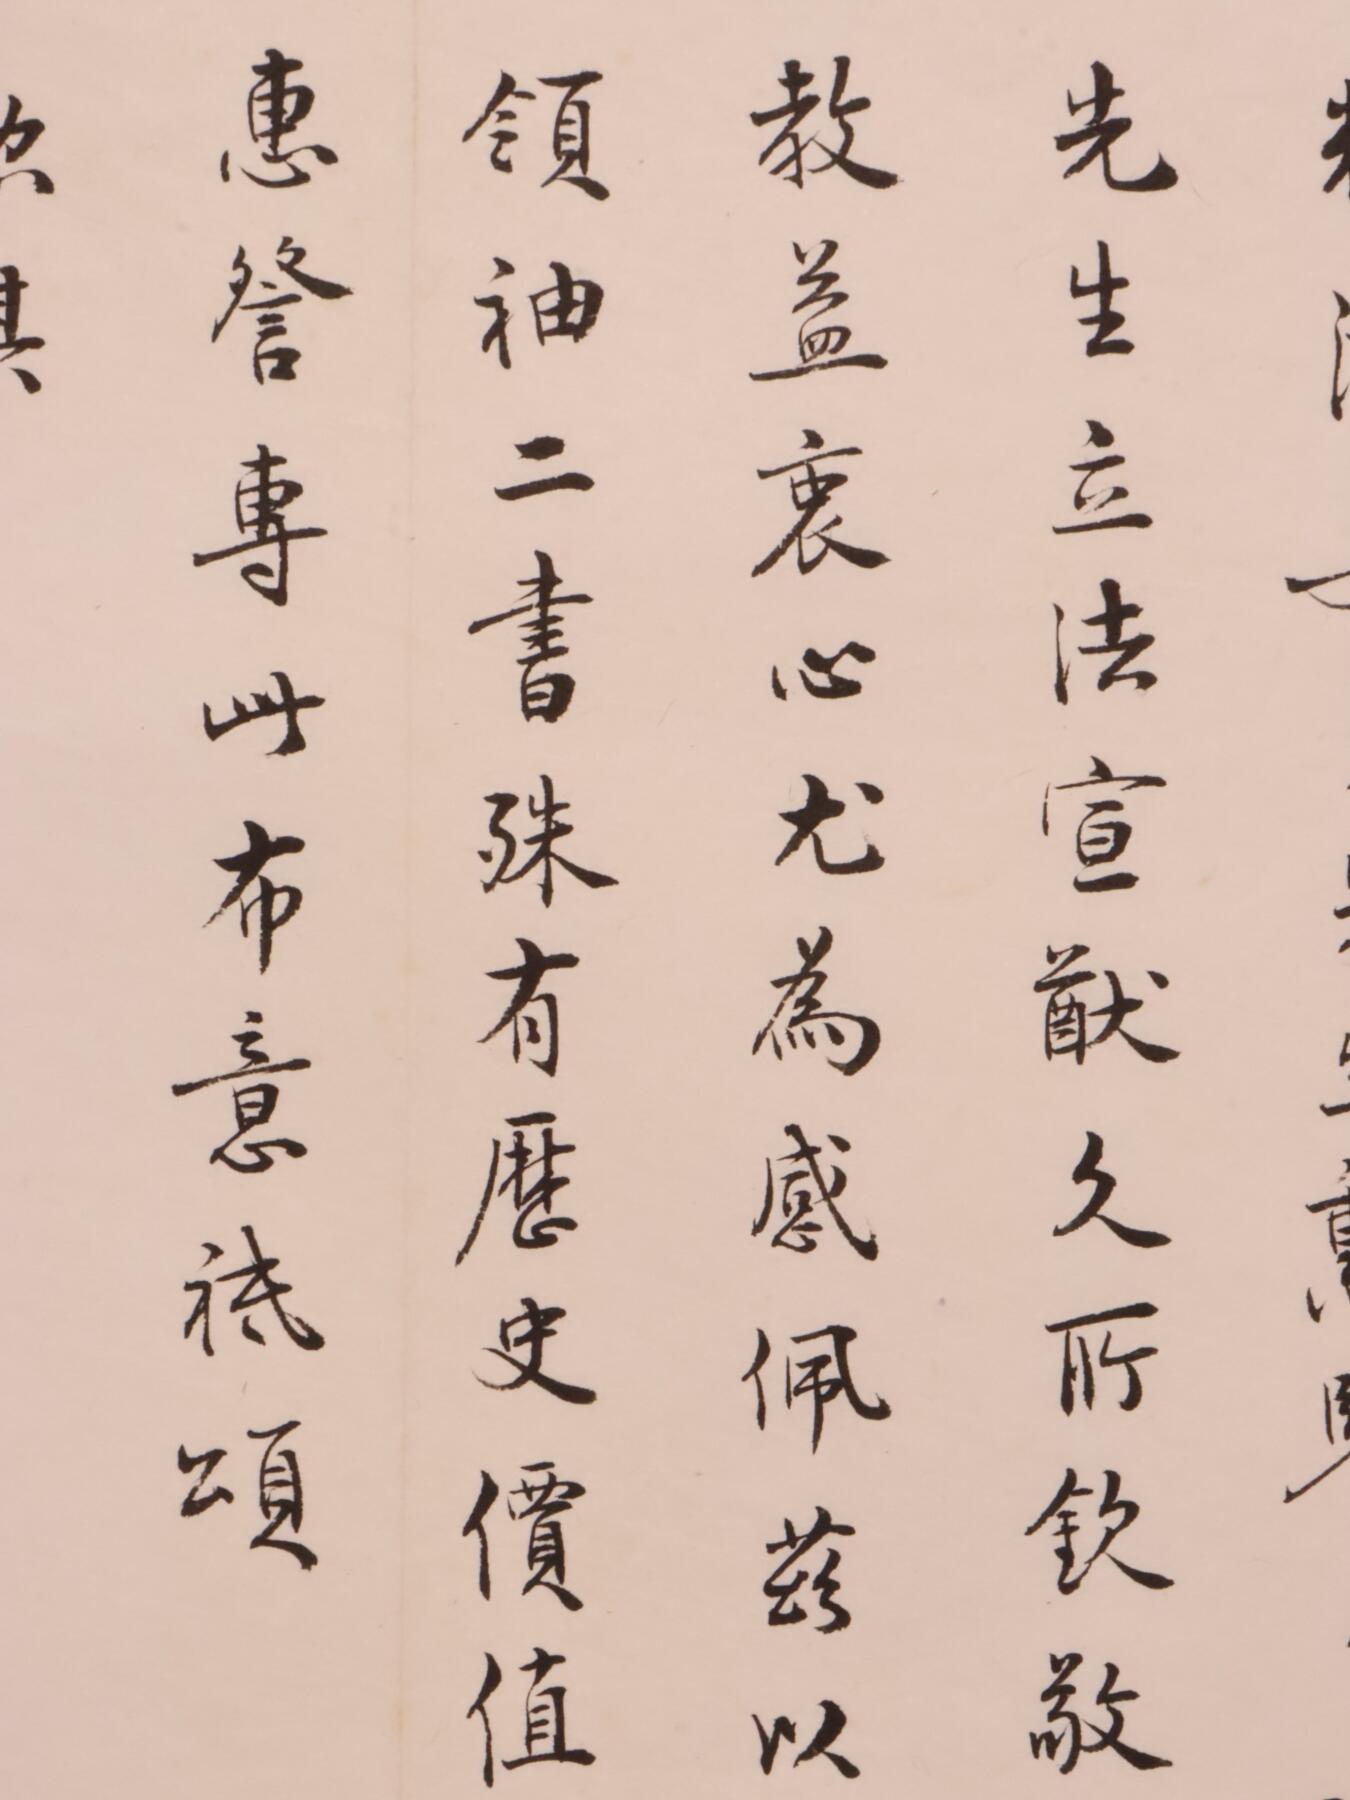 先生立法宣猷久所欽敬
教益衷心尤為感佩茲以
領袖二書殊有歷史價值
惠詧專此布意祗頌
勛祺